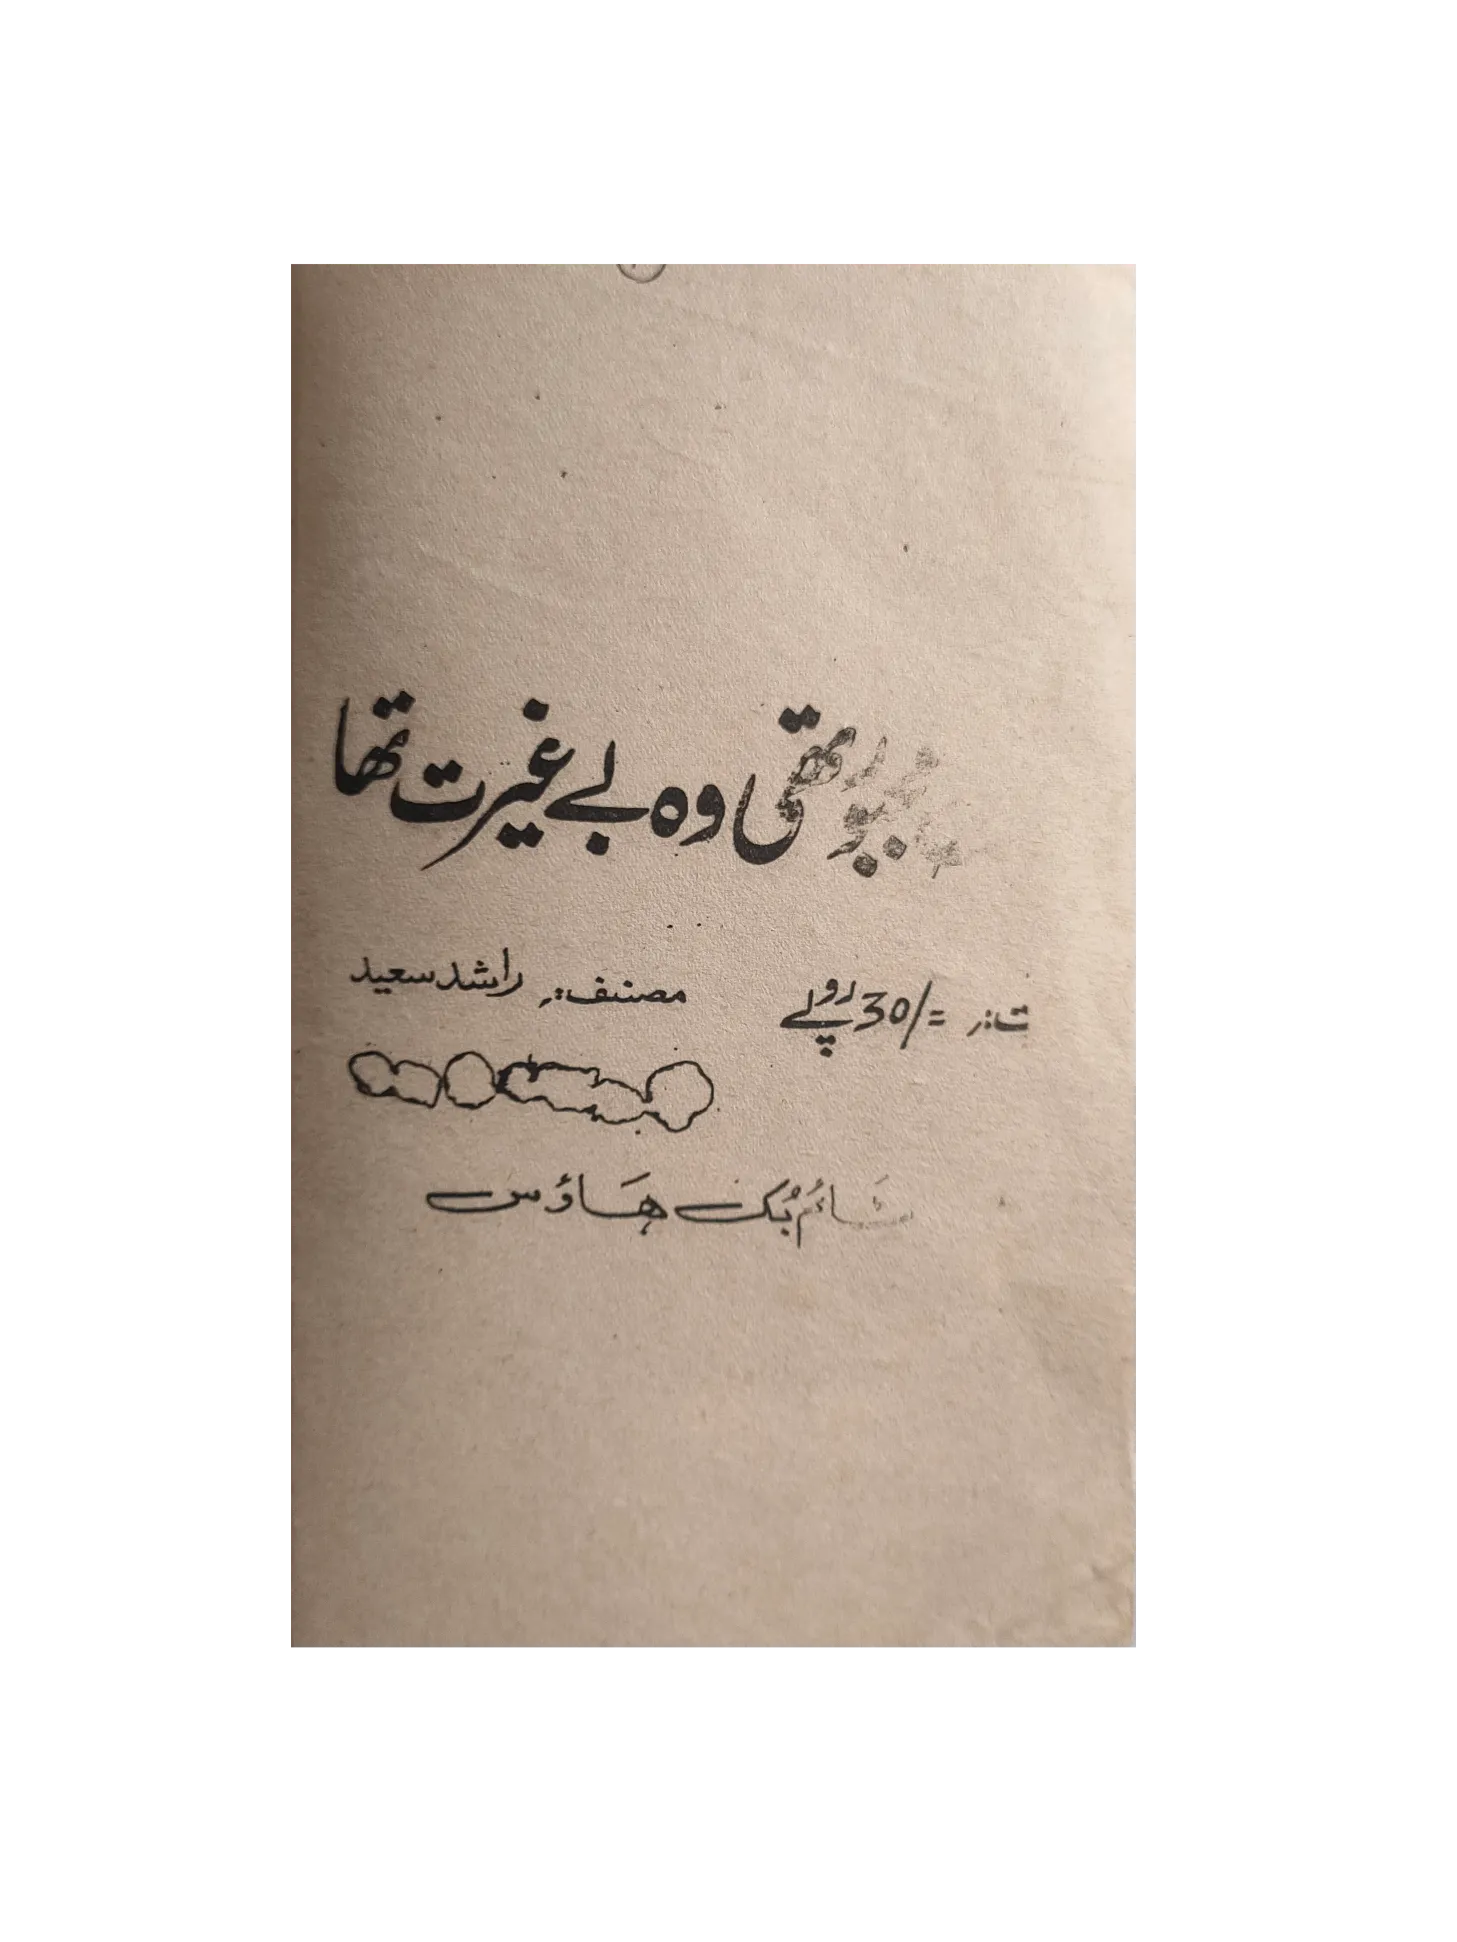 تھی وہ بے غیرت تھا
ت:ر =/30 روپے مصنف:ر راشد سعید
بُک ھاؤس